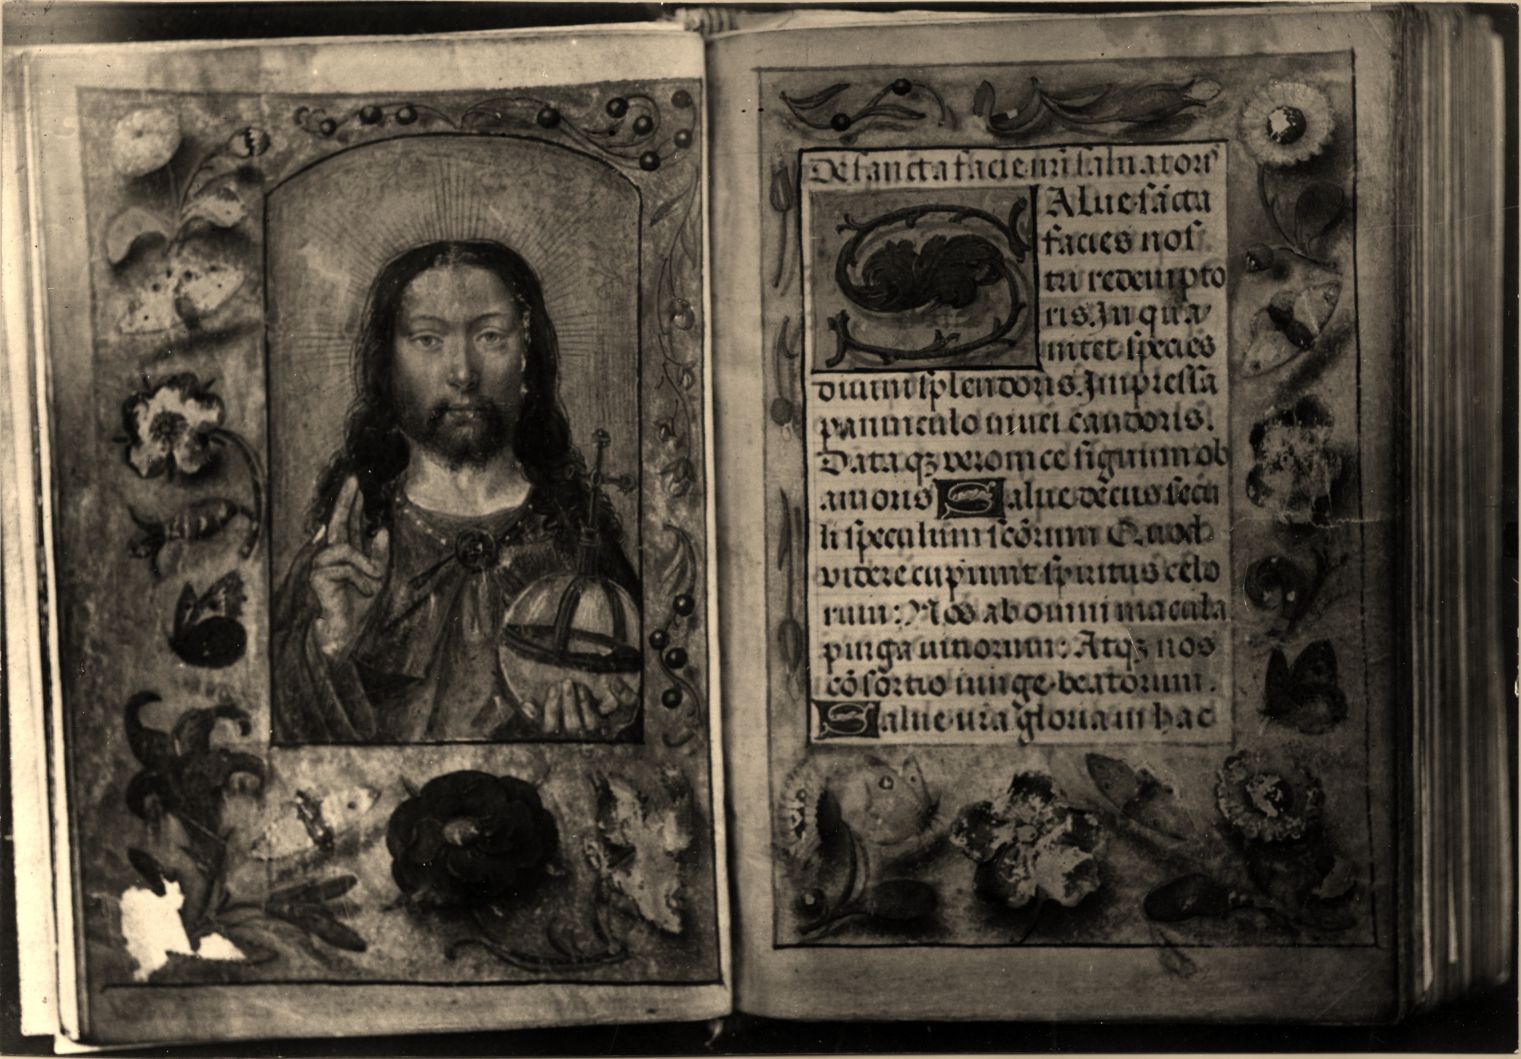 De sancta facie nr̄i saluatoris
SAlue sācta
facies nos
tri redempto
ris. In qua
nitet species
diuini splendoris. Impressa
panniculo niuei candoris.
Dataqꝫ veronice signum ob
amoris Salue decus secu
li speculum sc̄orum Quod
videre cupiunt spiritus celo
rum: Nos ab omni macula
purga vitiorum: Atqꝫ nos
cōsortio iunge beatorum.
Salue nr̄a gloria in hac